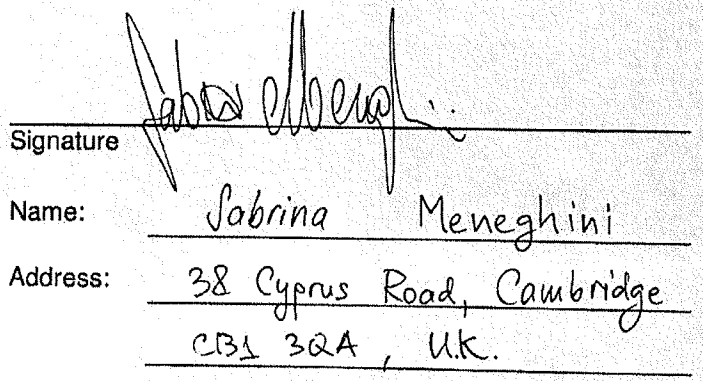 Sabrina Meneghini
Signature
Name: Sabrina Meneghini
Address: 38 Cyprus Road, Cambridge
CB1 3QA, U.K.